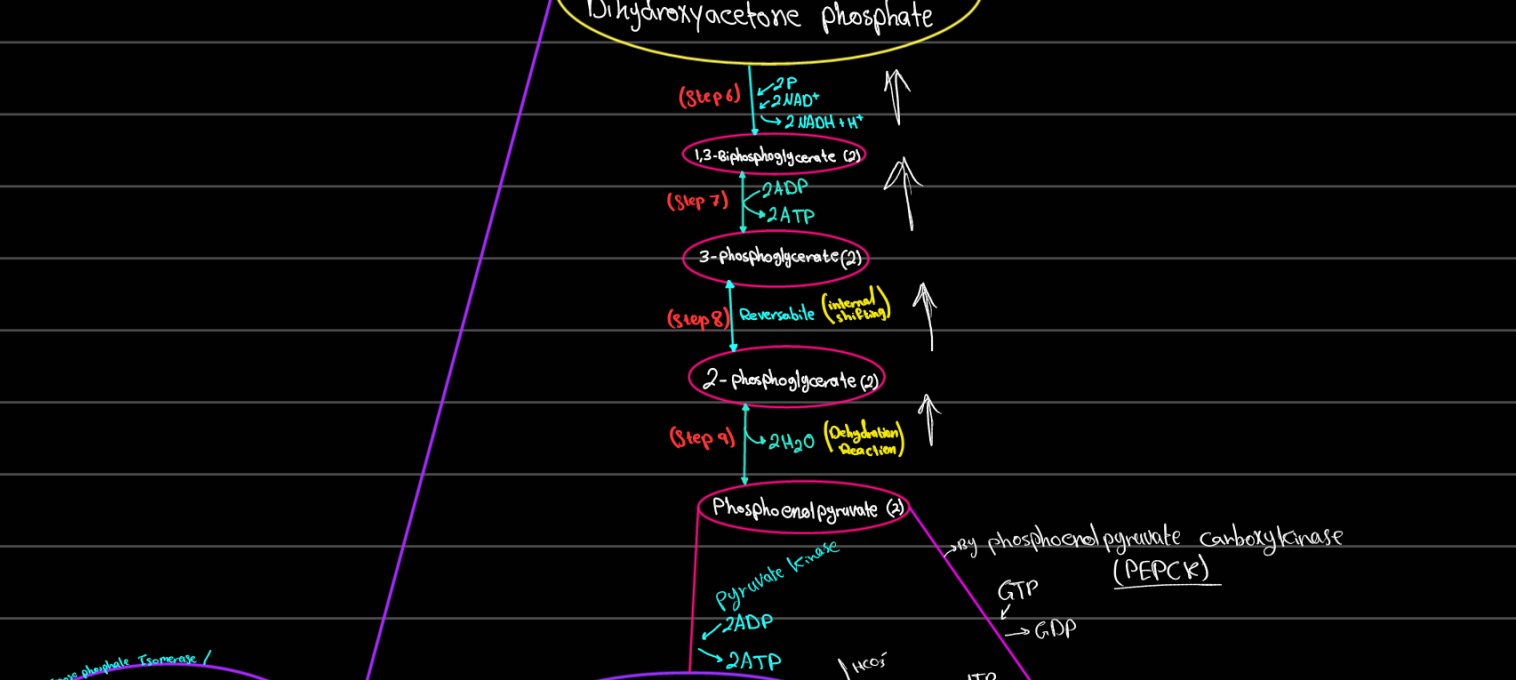 Dihydroxyacetone phosphate
(Step 6)
2P
2NAD+
2 NADH + H+
1,3-Biphosphoglycerate (2)
(Step 7)
2ADP
2ATP
3-phosphoglycerate (2)
(Step 8)
Reversabile
(internal
shifting)
2-phosphoglycerate (2)
(Step 9)
2H2O
(Dehydration
Reaction)
Phosphoenolpyruvate (2)
By phosphoenolpyruvate carboxykinase
(PEPCK)
pyruvate kinase
GTP
GDP
2ADP
2ATP
phosphate Isomerase
HCO3-